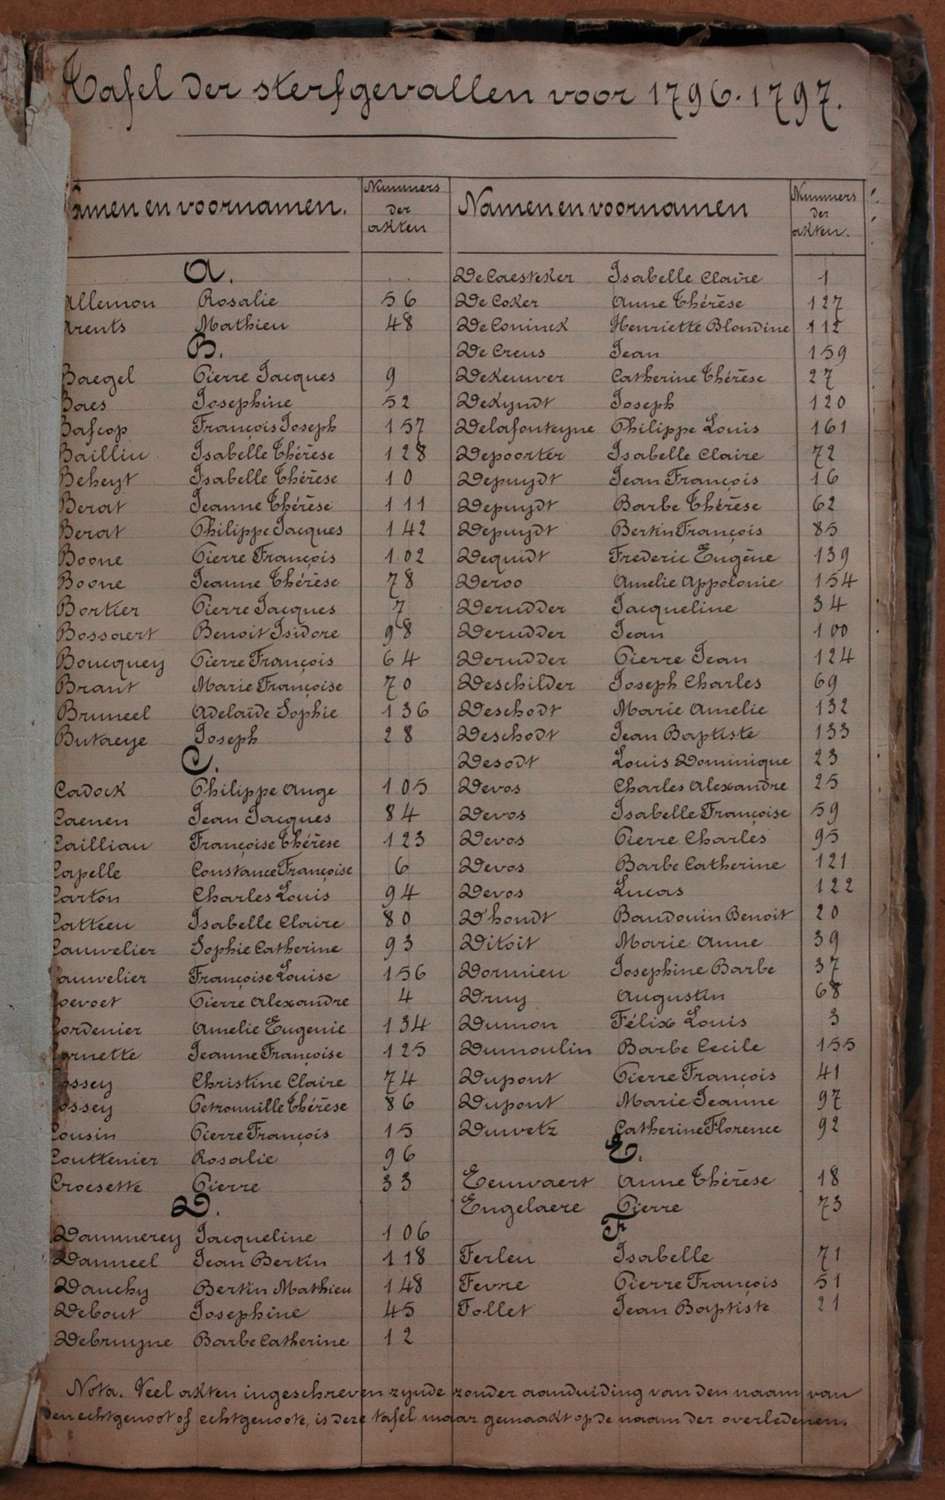 Tafel der sterfgevallen voor 1796-1797.
Namen en voornamen. Nummers der akten
A.
Allemon Rosalie 56
Arents Mathieu 48
B.
Baegel Pierre Jacques 9
Baes Josephine 52
Bafcop François Joseph 157
Bailliu Isabelle Thérèse 128
Beheyt Isabelle Thérèse 10
Berat Jeanne Thérèse 111
Berat Philippe Jacques 142
Boone Pierre François 102
Boone Jeanne Thérèse 78
Bortier Pierre Jacques 7
Bossaert Benoit Isidore 98
Boucquey Pierre François 64
Braut Marie Françoise 70
Bruneel Adelaïde Sophie 136
Butaeye Joseph 28
C.
Cadock Philippe Ange 105
Caenen Jean Jacques 84
Cailliau Françoise Thérèse 123
Capelle Constance Françoise 6
Carton Charles Louis 94
Cattieu Isabelle Claire 80
Cauvelier Sophie Catherine 93
Cauvelier Françoise Louise 156
Coevoet Pierre Alexandre 4
Cordenier Amelie Eugenie 134
Cornette Jeanne Françoise 125
Cossey Christine Claire 74
Cossey Petronnille Thérèse 86
Cousin Pierre François 15
Couttenier Rosalie 96
Croesette Pierre 33
D.
Dammerey Jacqueline 106
Danneel Jean Bertin 118
Dauchy Bertin Mathieu 148
Debout Josephine 45
Debruyne Barbe Catherine 12
Namen en voornamen Nummers der akten.
DeCaesteker Isabelle Claire 1
DeCoker Anne Thérèse 127
DeConinck Henriette Blondine 112
DeCreus Jean 159
DeKeuwer Catherine Thérèse 27
DeKyndt Joseph 120
Delafonteyne Philippe Louis 161
Depoorter Isabelle Claire 72
Depuydt Jean François 16
Depuydt Barbe Thérèse 62
Depuydt Bertin François 85
Dequidt Frederic Eugène 139
Deroo Amelie Appolonie 154
Derudder Jacqueline 34
Derudder Jean 100
Derudder Pierre Jean 124
Deschilder Joseph Charles 69
Deschodt Marie Amelie 132
Deschodt Jean Baptiste 133
Desodt Louis Dominique 23
Devos Charles Alexandre 25
Devos Isabelle Françoise 59
Devos Pierre Charles 95
Devos Barbe Catherine 121
Devos Lucas 122
D'hondt Baudouin Benoit 20
Ditoit Marie Anne 39
Dormieu Josephine Barbe 37
Druy Augustin 68
Dumon Félix Louis 3
Dumoulin Barbe Cecile 155
Dupont Pierre François 41
Dupont Marie Jeanne 97
Duvetz Catherine Florence 92
E.
Eeuwaert Anne Thérèse 18
Engelaere Pierre 73
F
Ferleu Isabelle 71
Fevre Pierre François 51
Follet Jean Baptiste 21
Nota. Veel akten ingeschreven zynde zonder aanduiding van den naam van
den echtgenoot of echtgenoote, is deze tafel maar gemaakt op de naam der overledenen.